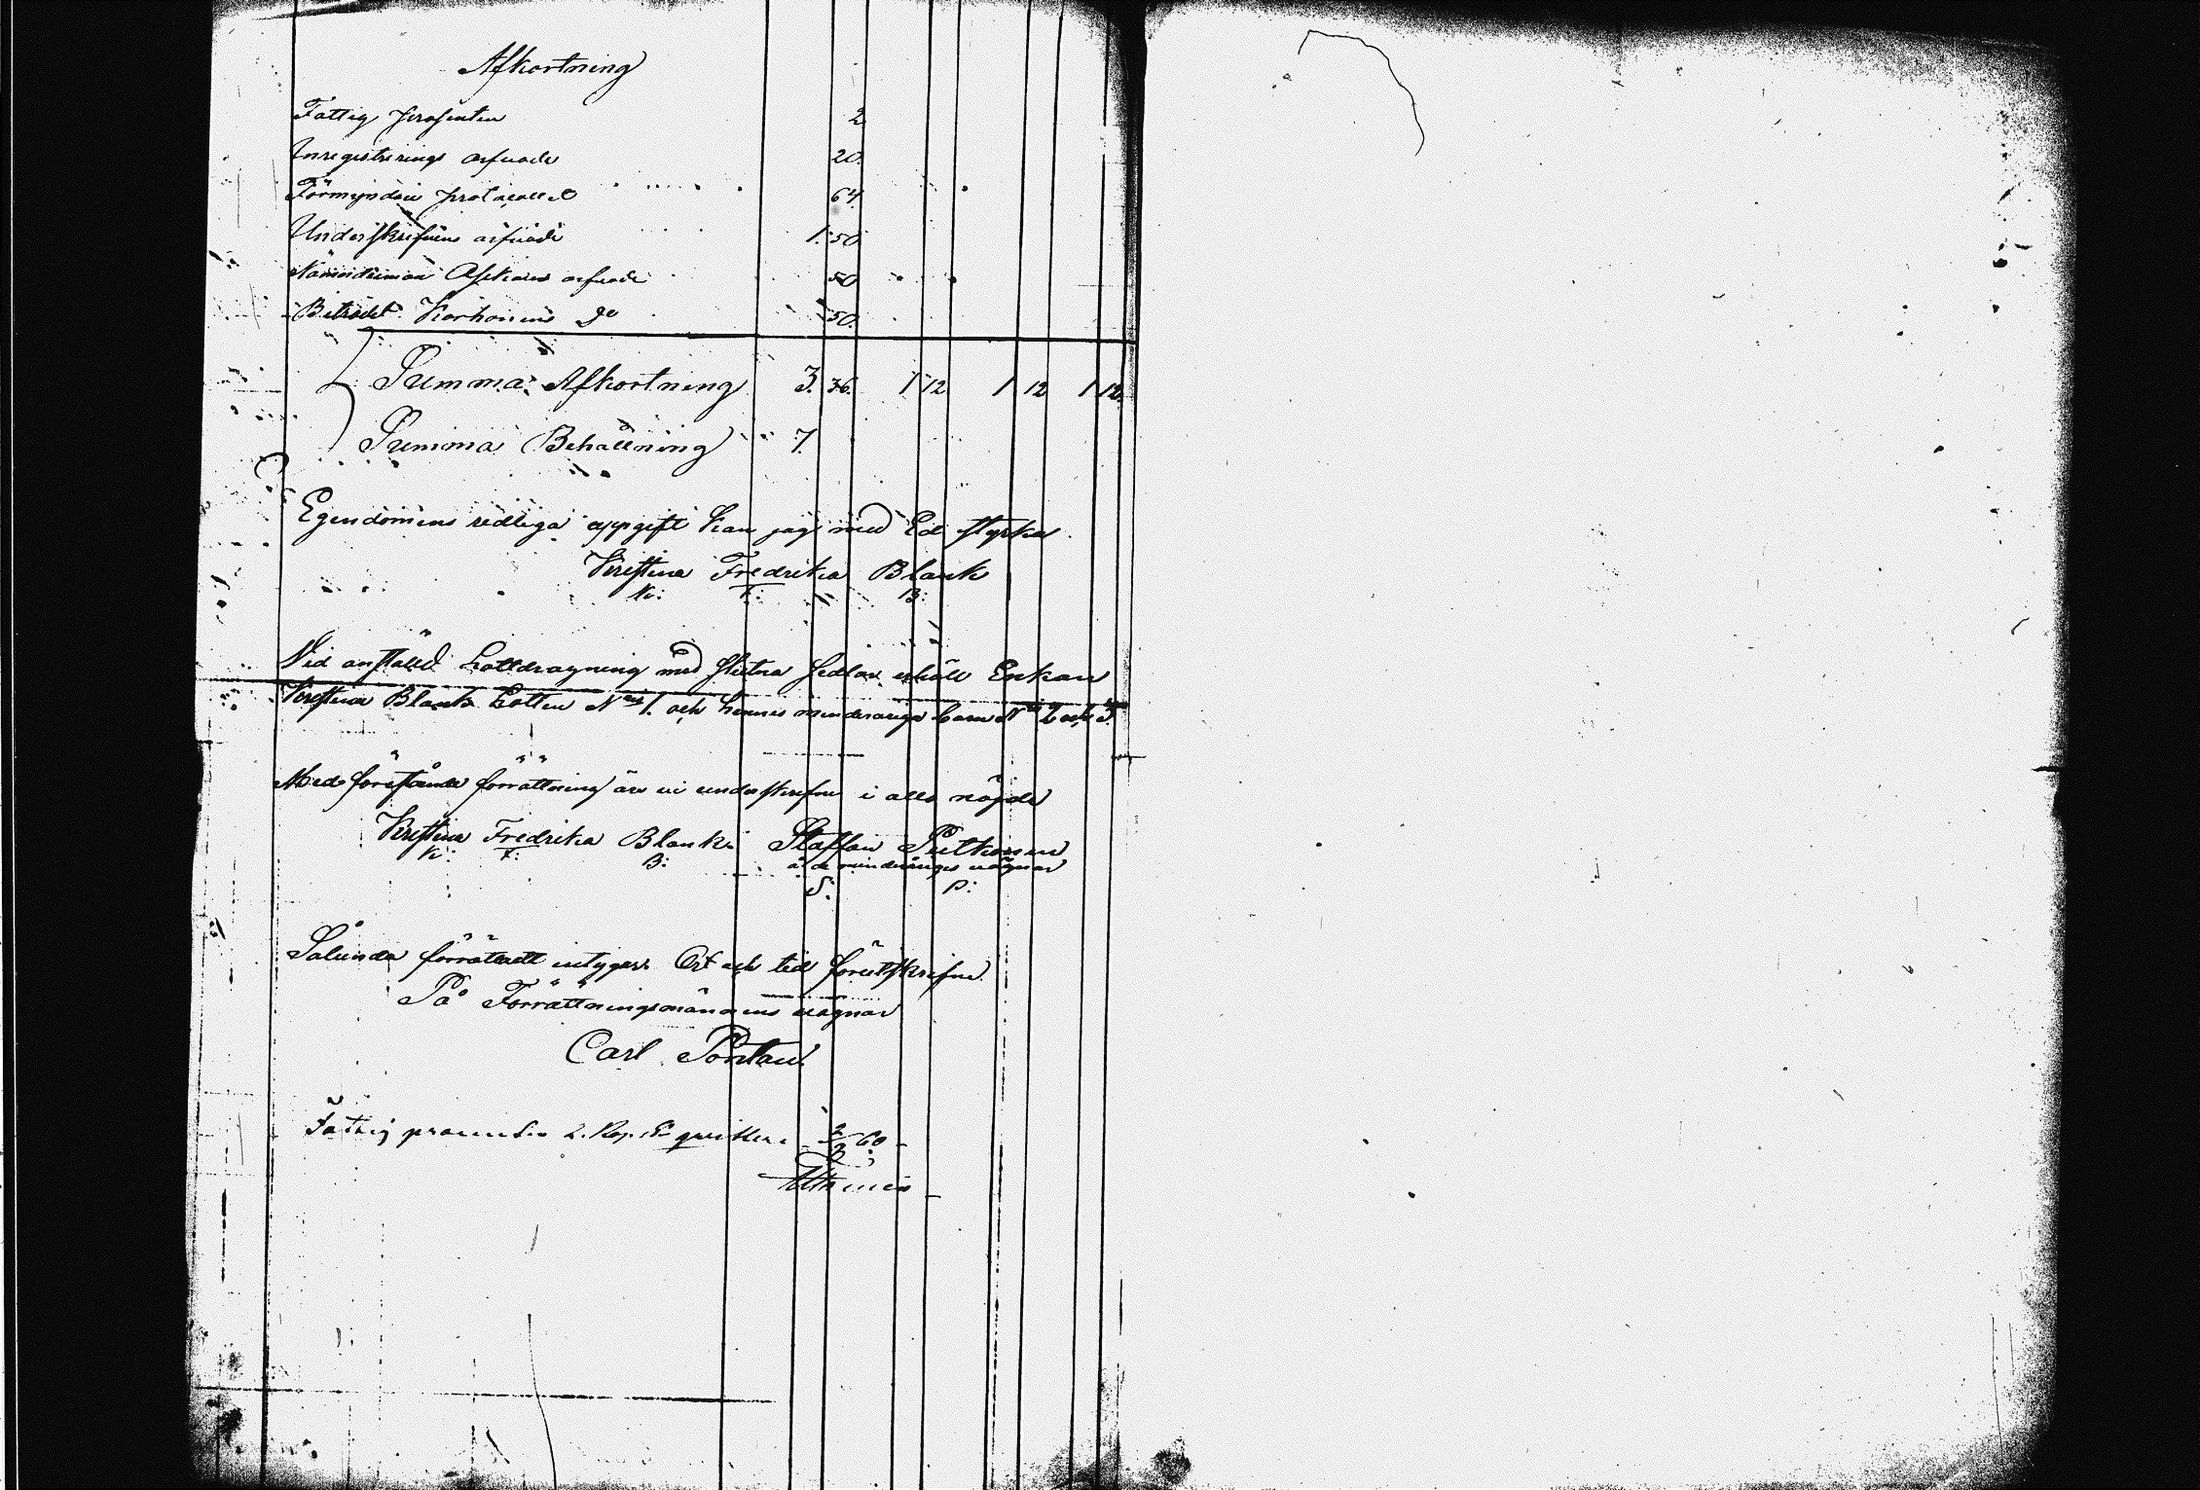 Afkortning
Fattig prosenten 2
Inregistrerings arfvode 20.
Förmyndare protocollet 64.
Underskrifvens arfvode 1. 50
Nämndeman arfvode 50
Biträdet Korhonens Do 50.
Summa Afkortning 3. 36. 1 12 1 12 1 12.
Summa Behållning 7.
Egendomens redliga uppgift kan jag med Ed styrka.
Kristina Fredrika Blank
K: F: B:
Vid anstäld Lottdragning med slutna sedlar erhöll Enkan
Kristina Blank Lotten No 1. och hennes minderåriga barn No 2 och 3.
Med förestående förrättning äro vi underskrifne i allo nöjde
Kristina Fredrika Blank Staffan Putkonen
K: F: B: å de minderåriges vägnar
S: P:
Sålunda förrättadt intygar. Ort och tid förutskrifne.
På Förrättningsmännens vägnar
Carl Pontan
Fattig procenten 2. Kop. Sr quitteras 60